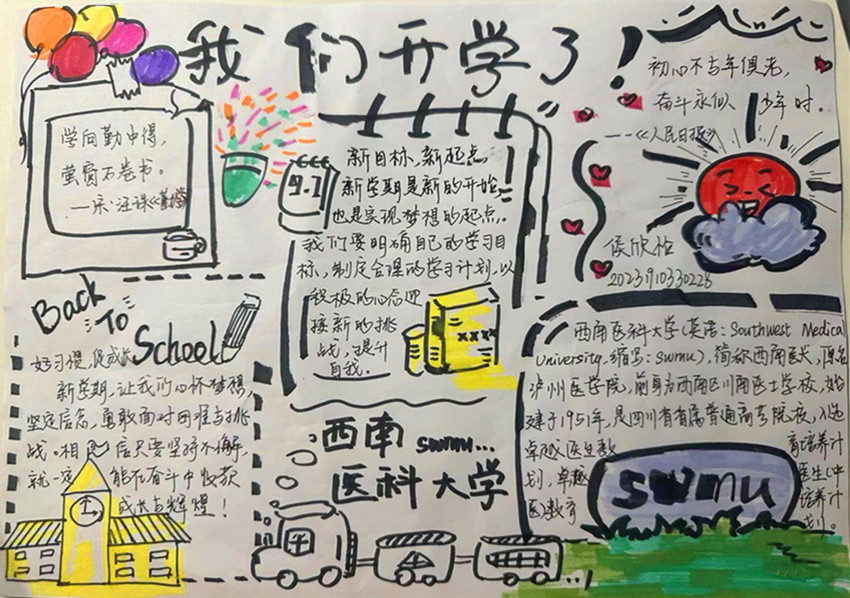 我们开学了!
学问勤中得,
萤窗万卷书。
——宋·汪洙《
9.1
新目标,新起点,
新学期是新的开始,
也是实现梦想的起点。
我们要明确自己的学习目
标,制定合理的学习计划,以
积极的心态迎
接新的挑
战,提升
自我。
初心不与年俱老,
奋斗永似少年时。
——《人民日报》
侯欣怡
2023910330228
Back
To
School
好习惯,促成长
新学期,让我们心怀梦想,
坚定信念,勇敢面对困难与挑
战。相信只要坚持不懈,
就一定能在奋斗中收获
成长与辉煌!
西南 swmu...
医科大学
西南医科大学(英语:Southwest Medical
University,缩写:swmu),简称西南医大,原名
泸州医学院,前身为西南区川南医士学校,始
建于1951年,是四川省省属普通高等院校,入选
卓越医生教育培养计
划,卓越医生(中
医)教育培养计
划。
swmu